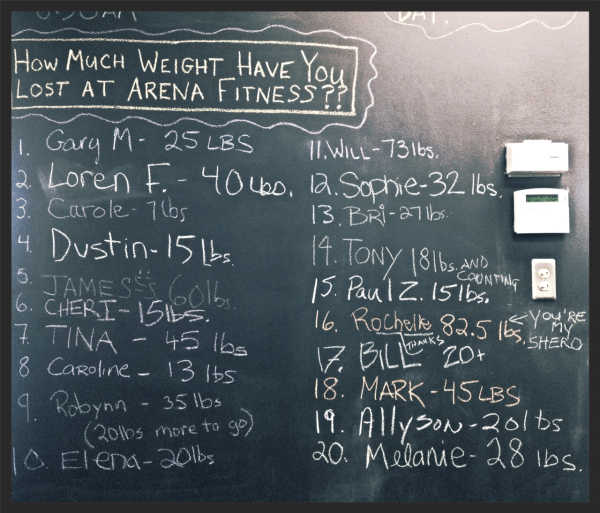 How Much Weight Have You
Lost at Arena Fitness??
1. Gary M - 25 LBS
2. Loren F. - 40 Lbs.
3. Carole - 7 lbs
4. Dustin - 15 lbs.
5. JAMES 60 lbs.
6. CHERI - 15 lbs.
7. TINA - 45 lbs
8 Caroline - 13 lbs
9. Robynn - 35 lbs
(20lbs more to go)
10. Elena - 20lbs
11. WILL - 73 lbs.
12. Sophie - 32 lbs.
13. Bri - 27 lbs.
14. TONY 18 lbs. AND
COUNTING
15. Paul Z. 15 lbs.
16. Rochelle 82.5 lbs. YOU'RE
MY
SHERO
THANKS
17. BILL 20+
18. MARK - 45 LBS
19. Allyson - 20 lbs
20. Melanie - 28 lbs.